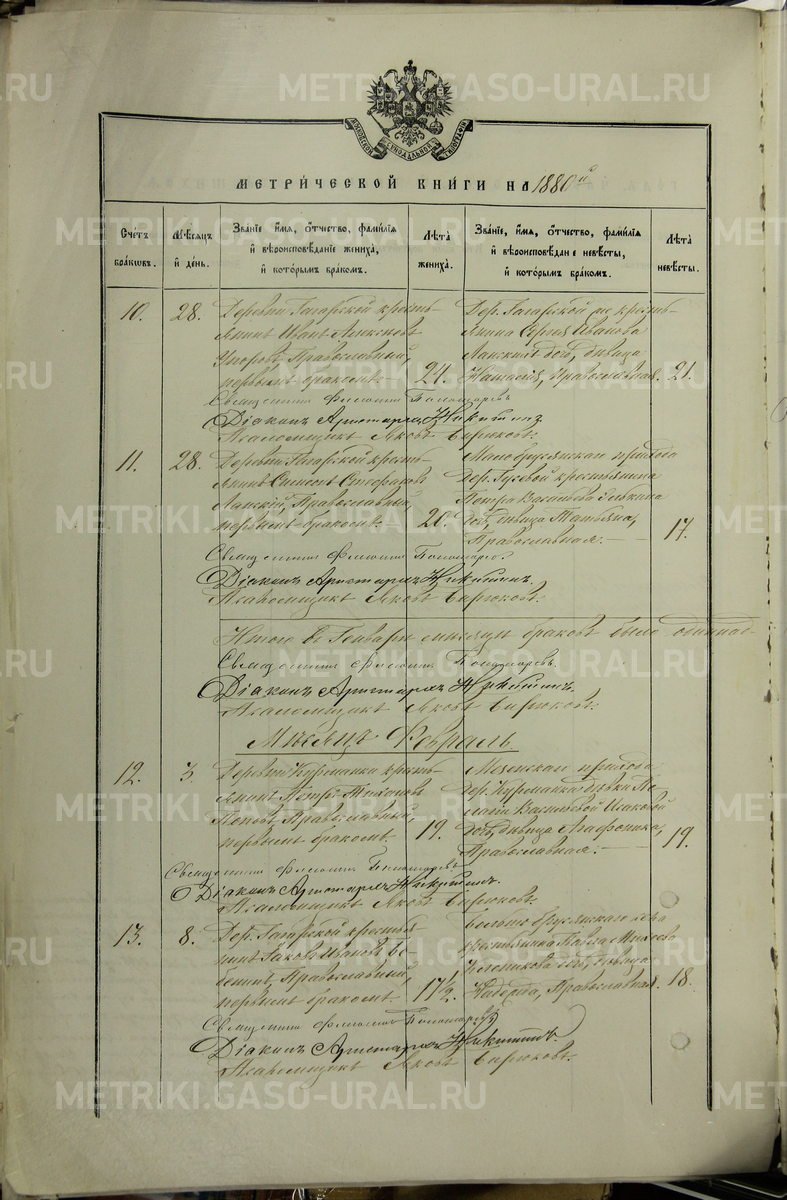 МОСКОВСКОЙ СѴНОДАЛЬНОЙ ТИПОГРАФІИ
МЕТРИ́ЧЕСКОЙ КНИ́ГИ НА 1880 й
Сче́тъ бра́ковъ.
Мѣ́сяцъ и҆ де́нь.
Зва́нїе, и҆́мѧ, ѻ҆́тчество, фами́лїѧ
и҆ вѣроисповѣ́данїе жениха̀,
и҆ кото́рымъ бра́комъ.
Лѣ́та жениха̀.
Зва́нїе, и҆́мѧ, ѻ҆́тчество, фами́лїѧ
и҆ вѣроисповѣ́дан е невѣ́сты,
и҆ кото́рымъ бра́комъ.
Лѣ́та невѣ́сты.
10. 28. Деревни Гагарской кресть-
янинъ Иванъ
Упоровъ, Православный,
первымъ бракомъ. 24.
Дер. Гагарской же кресть-
янина Сергѣя Иванова
дочь, дѣвица
Наталія, Православная. 21.
Священникъ Пономаревъ
Діаконъ Аристархъ Никитинъ.
Псаломщикъ Яковъ Бирюковъ.
11. 28. Деревни Гагарской кресть-
янинъ
Православный,
первымъ бракомъ. 20.
Малобрусянскаго прихода
дер. Гусевой крестьянина
Петра Васильева
дочь, дѣвица Татьяна,
Православная. 17.
Священникъ Пономаревъ.
Діаконъ Аристархъ Никитинъ.
Псаломщикъ Яковъ Бирюковъ.
Итого въ Генварѣ мѣсяцѣ браковъ было одиннад-
Священникъ Пономаревъ.
Діаконъ Аристархъ Никитинъ.
Псаломщикъ Яковъ Бирюковъ.
Мѣсяцъ Февраль.
12. 3. Деревни Курманки кресть-
янинъ Петръ
Поповъ, Православный,
первымъ бракомъ. 19.
Мезенскаго прихода
дер. Курманки дѣвки
Васильевой Исаковой
дочь, дѣвица Агафоника,
Православная. 19.
Священникъ Пономаревъ
Діаконъ Аристархъ Никитинъ.
Псаломщикъ Яковъ Бирюковъ.
13. 8. Дер. Гагарской крестья-
нинъ Иаковъ Ивановъ
Православный,
первымъ бракомъ. 17½.
Больше Брусянскаго села
крестьянина Павла
дочь, дѣвица
Надежда, Православная. 18.
Священникъ Пономаревъ
Діаконъ Аристархъ Никитинъ.
Псаломщикъ Яковъ Бирюковъ.
METRIKI.GASO-URAL.RU